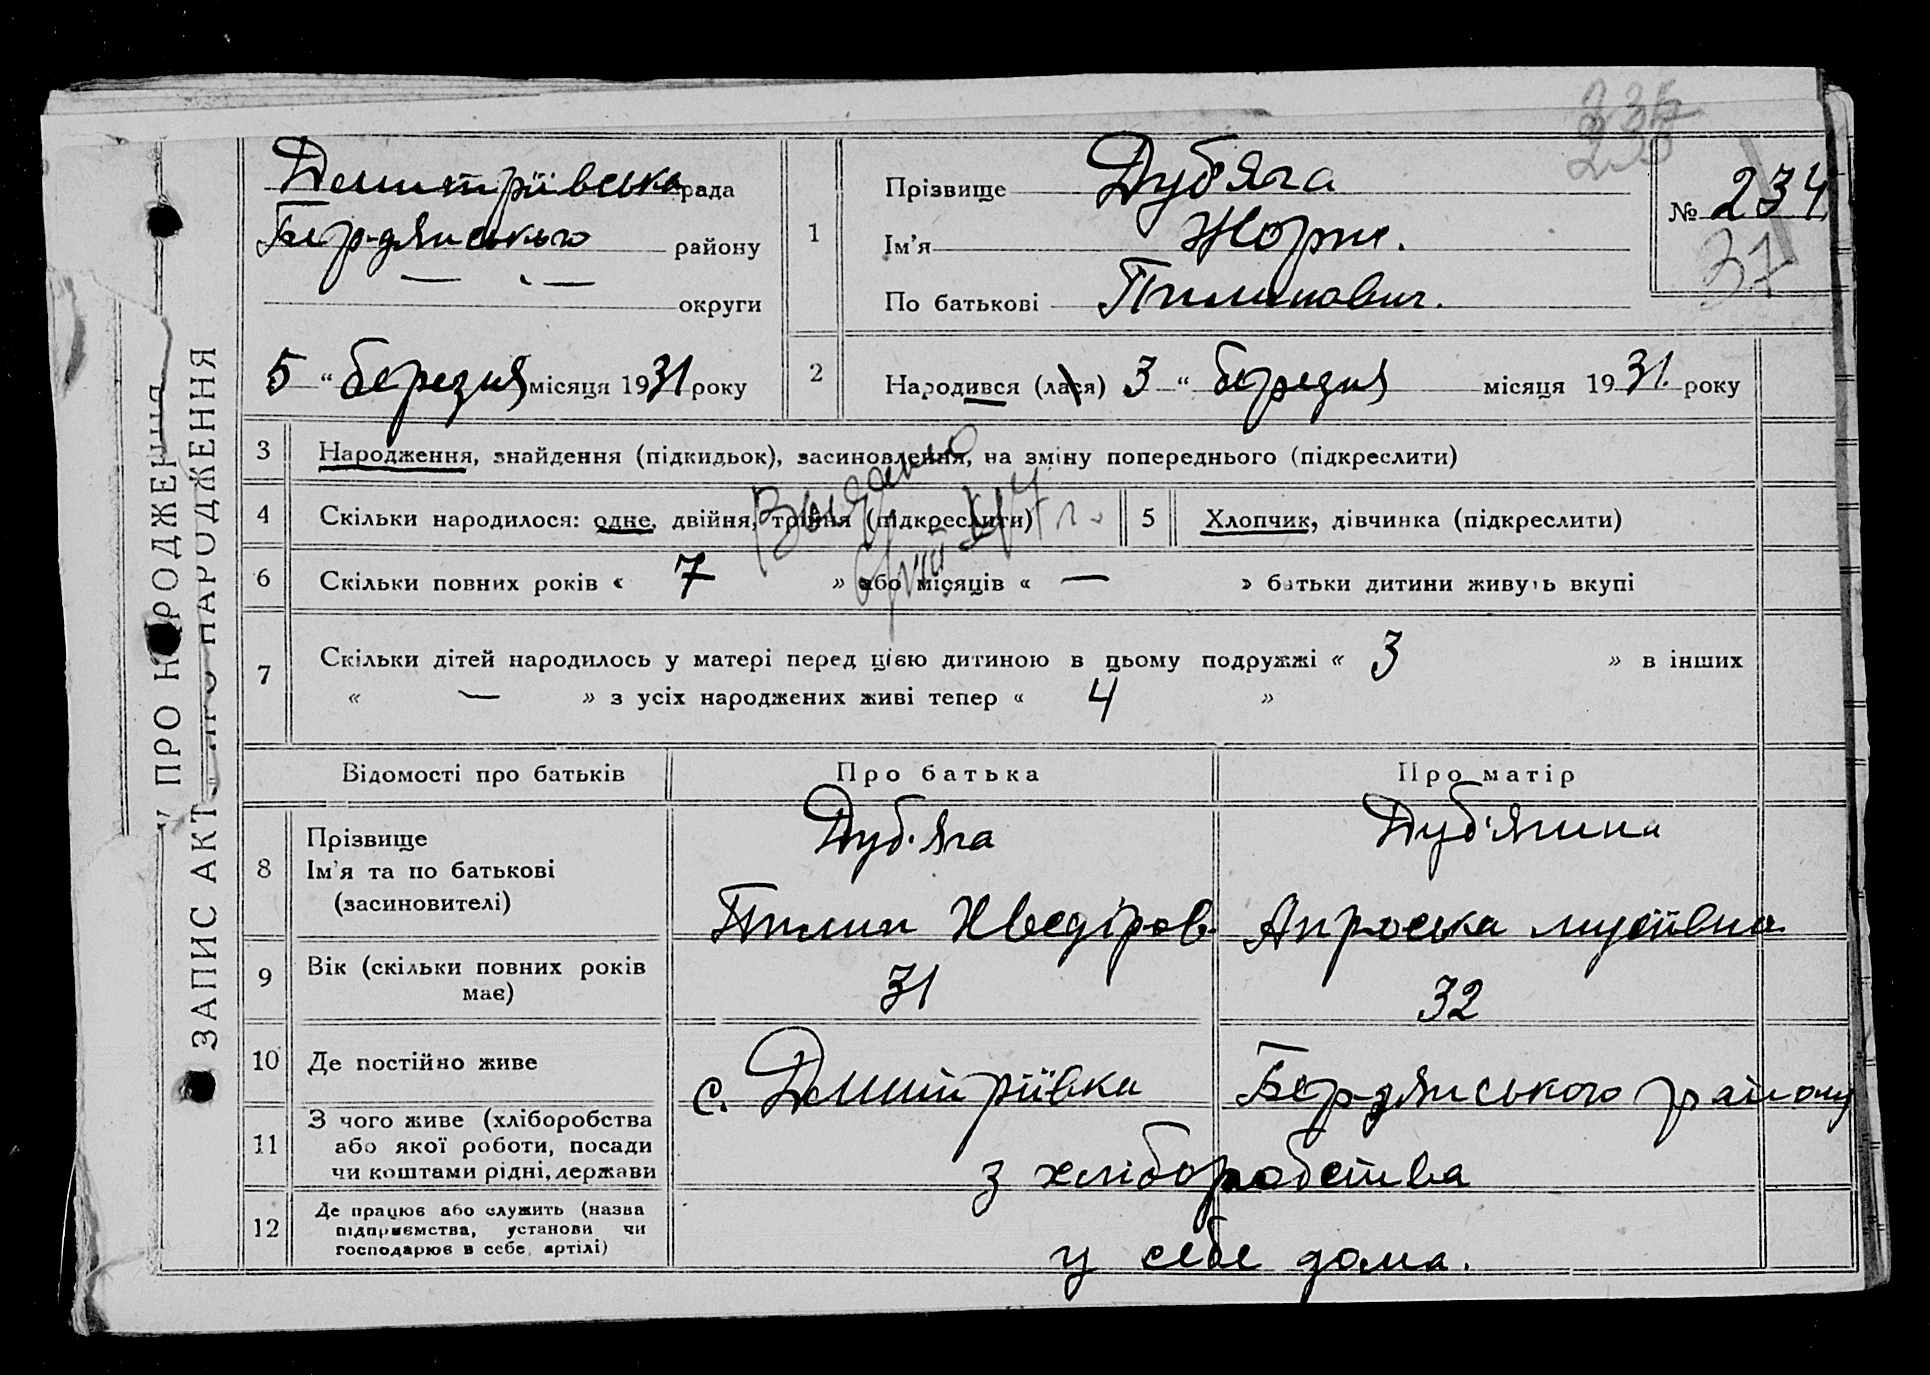 235
Дмитріївська рада
Бердянського району
— — округи
1
Прізвище Дуб'яга
Ім'я Жорж.
По батькові Пилипович.
№ 234
37
5 " березня місяця 1931 року
2
Народився (лася) 3 " березня місяця 1931. року
3 Народження, знайдення (підкидьок), засиновлення, на зміну попереднього (підкреслити)
4 Скільки народилося: одне, двійня, трійня (підкреслити)
5 Хлопчик, дівчинка (підкреслити)
6 Скільки повних років « 7 » або місяців « — » батьки дитини живуть вкупі
7 Скільки дітей народилось у матері перед цією дитиною в цьому подружжі « 3 » в інших
« — » з усіх народжених живі тепер « 4 »
Відомості про батьків Про батька Про матір
8 Прізвище
Ім'я та по батькові
(засиновителі)
Дуб'яга
Пилип Хведіров.
Дуб'ягина
Апроська мусіївна
9 Вік (скільки повних років має) 31 32
10 Де постійно живе с. Дмитріївка Бердянського району
11 З чого живе (хліборобства
або якої роботи, посади
чи коштами рідні, держави
з хліборобства
12 Де працює або служить (назва
підприємства, установи чи
господарює в себе, артілі)
у себе дома.
ЗАПИС АКТ ПРО НАРОДЖЕННЯ
ПРО НАРОДЖЕННЯ